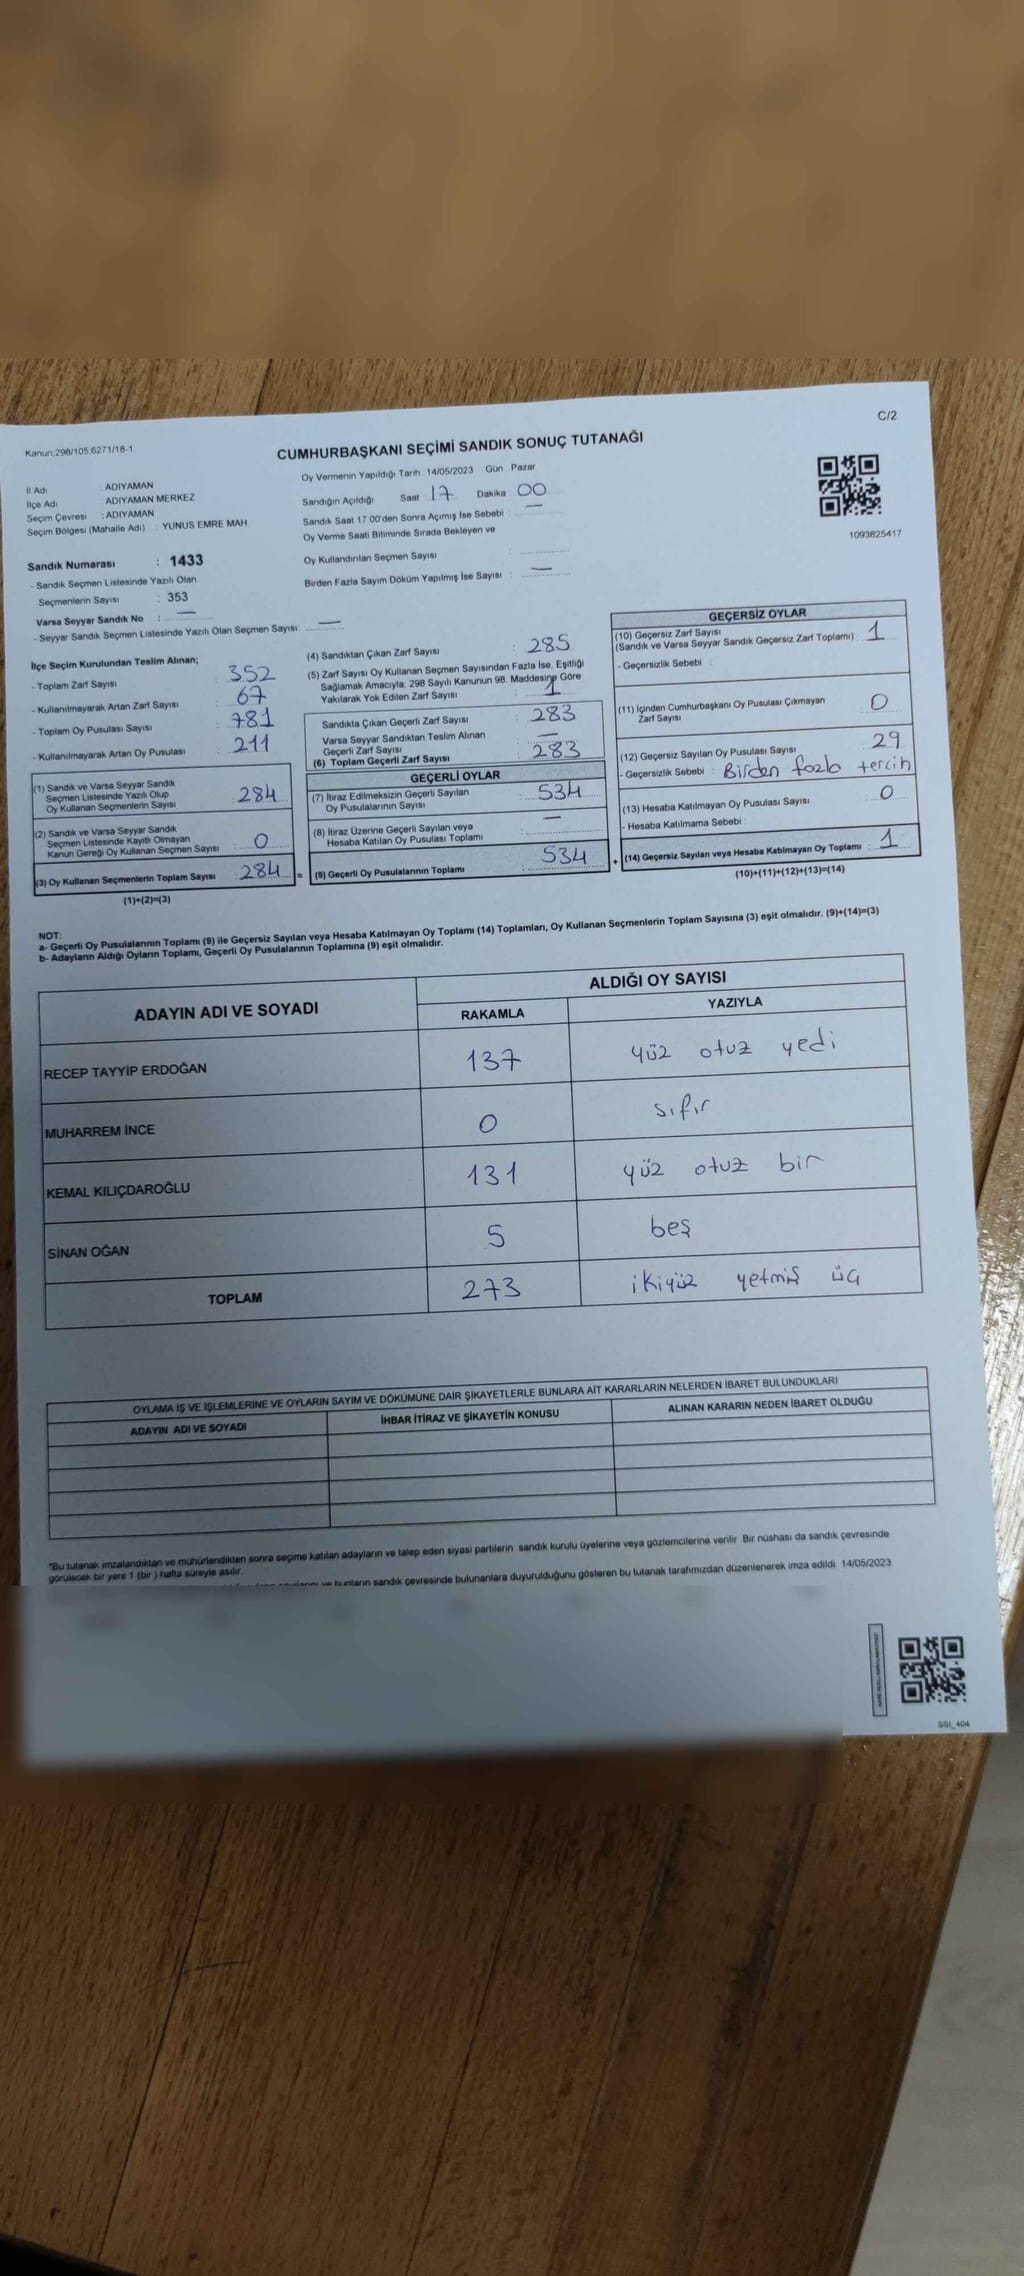 C/2
Kanun:298/105.6271/18-1
CUMHURBAŞKANI SEÇİMİ SANDIK SONUÇ TUTANAĞI
İl Adı : ADIYAMAN
İlçe Adı : ADIYAMAN MERKEZ
Seçim Çevresi : ADIYAMAN
Seçim Bölgesi (Mahalle Adı) : YUNUS EMRE MAH.
Oy Vermenin Yapıldığı Tarih : 14/05/2023 Gün : Pazar
Sandığın Açıldığı Saat 17 Dakika 00
Sandık Saat 17:00'den Sonra Açımış İse Sebebi : —
Oy Verme Saati Bitiminde Sırada Bekleyen ve
Oy Kullandırılan Seçmen Sayısı :
Birden Fazla Sayım Döküm Yapılmış İse Sayısı : —
1093825417
Sandık Numarası : 1433
- Sandık Seçmen Listesinde Yazılı Olan
Seçmenlerin Sayısı : 353
Varsa Seyyar Sandık No : —
- Seyyar Sandık Seçmen Listesinde Yazılı Olan Seçmen Sayısı: —
İlçe Seçim Kurulundan Teslim Alınan;
- Toplam Zarf Sayısı : 352
- Kullanılmayarak Artan Zarf Sayısı : 67
- Toplam Oy Pusulası Sayısı : 781
- Kullanılmayarak Artan Oy Pusulası : 211
(1) Sandık ve Varsa Seyyar Sandık
Seçmen Listesinde Yazılı Olup
Oy Kullanan Seçmenlerin Sayısı : 284
(2) Sandık ve Varsa Seyyar Sandık
Seçmen Listesinde Kayıtlı Olmayan
Kanun Gereği Oy Kullanan Seçmen Sayısı : 0
(3) Oy Kullanan Seçmenlerin Toplam Sayısı : 284
(1)+(2)=(3)
(4) Sandıktan Çıkan Zarf Sayısı : 285
(5) Zarf Sayısı Oy Kullanan Seçmen Sayısından Fazla İse, Eşitliği
Sağlamak Amacıyla, 298 Sayılı Kanunun 98. Maddesine Göre
Yakılarak Yok Edilen Zarf Sayısı : 1
Sandıkta Çıkan Geçerli Zarf Sayısı : 283
Varsa Seyyar Sandıktan Teslim Alınan
Geçerli Zarf Sayısı : —
(6) Toplam Geçerli Zarf Sayısı : 283
GEÇERLİ OYLAR
(7) İtiraz Edilmeksizin Geçerli Sayılan
Oy Pusulalarının Sayısı : 534
(8) İtiraz Üzerine Geçerli Sayılan veya
Hesaba Katılan Oy Pusulası Toplamı : —
= (9) Geçerli Oy Pusulalarının Toplamı : 534
GEÇERSİZ OYLAR
(10) Geçersiz Zarf Sayısı
(Sandık ve Varsa Seyyar Sandık Geçersiz Zarf Toplamı) : 1
- Geçersizlik Sebebi :
(11) İçinden Cumhurbaşkanı Oy Pusulası Çıkmayan
Zarf Sayısı : 0
(12) Geçersiz Sayılan Oy Pusulası Sayısı : 29
- Geçersizlik Sebebi : Birden fazla tercih
(13) Hesaba Katılmayan Oy Pusulası Sayısı : 0
- Hesaba Katılmama Sebebi :
+ (14) Geçersiz Sayılan veya Hesaba Katılmayan Oy Toplamı : 1
(10)+(11)+(12)+(13)=(14)
NOT:
a- Geçerli Oy Pusulalarının Toplamı (9) ile Geçersiz Sayılan veya Hesaba Katılmayan Oy Toplamı (14) Toplamları, Oy Kullanan Seçmenlerin Toplam Sayısına (3) eşit olmalıdır. (9)+(14)=(3)
b- Adayların Aldığı Oyların Toplamı, Geçerli Oy Pusulalarının Toplamına (9) eşit olmalıdır.
ADAYIN ADI VE SOYADI
ALDIĞI OY SAYISI
RAKAMLA YAZIYLA
RECEP TAYYİP ERDOĞAN 137 yüz otuz yedi
MUHARREM İNCE 0 sıfır
KEMAL KILIÇDAROĞLU 131 yüz otuz bir
SİNAN OĞAN 5 beş
TOPLAM 273 ikiyüz yetmiş üç
OYLAMA İŞ VE İŞLEMLERİNE VE OYLARIN SAYIM VE DÖKÜMÜNE DAİR ŞİKAYETLERLE BUNLARA AİT KARARLARIN NELERDEN İBARET BULUNDUKLARI
ADAYIN ADI VE SOYADI İHBAR İTİRAZ VE ŞİKAYETİN KONUSU ALINAN KARARIN NEDEN İBARET OLDUĞU
*Bu tutanak imzalandıktan ve mühürlendikten sonra seçime katılan adayların ve talep eden siyasi partilerin sandık kurulu üyelerine veya gözlemcilerine verilir. Bir nüshası da sandık çevresinde
görülecek bir yere 1 (bir ) hafta süreyle asılır.
ve bunların sandık çevresinde bulunanlara duyurulduğunu gösteren bu tutanak tarafımızdan düzenlenerek imza edildi. 14/05/2023
SSI_404